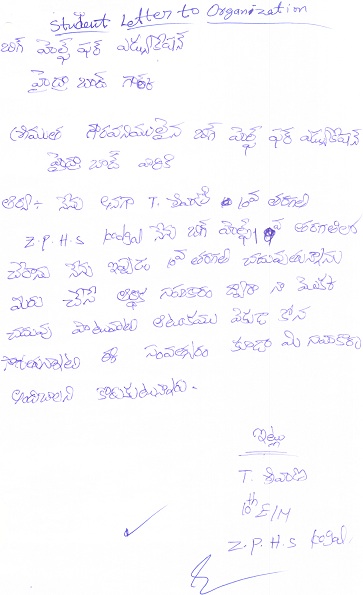 Student Letter to Organization
బిగ్ హెల్ప్ ఫర్ ఎడ్యుకేషన్
హైద్రా బాద్
శ్రీయుత గౌరవనీయులైన బిగ్ హెల్ప్ ఫర్ ఎడ్యుకేషన్
హైద్రా బాద్ వారికి
ఆర్య :- నేను అనగా T. శివాని 10వ తరగతి
Z.P.H.S నేను బిగ్ హెల్ప్ వ తరగతిలో
చేరాను నేను ఇప్పుడు 10వ తరగతి చదువుతున్నాను
మీరు చేసే ఆర్థిక సహకారం ద్వారా నా
చదువు ఆటంకము లేకుండా కొన
సాగుతున్నది ఈ సంవత్సరం కూడా మీ సహకారం
అందించాలని కోరుకుతున్నాను.
ఇట్లు
T. శివాని
10th E/M
Z.P.H.S